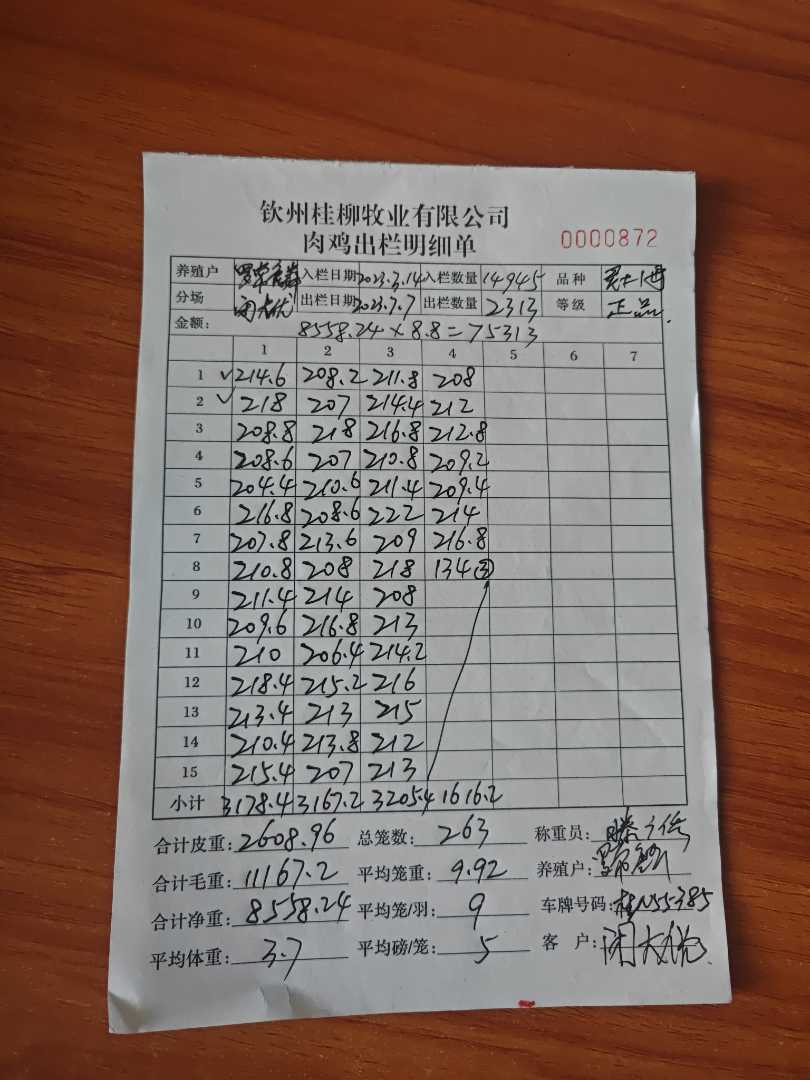 钦州桂柳牧业有限公司
肉鸡出栏明细单 0000872
养殖户 入栏日期 2023.3.14 入栏数量 14945 品种
分场 出栏日期 2023.7.7 出栏数量 2313 等级 正品
金额: 8558.24×8.8=75313
1 2 3 4 5 6 7
1 ✓ 214.6 208.2 211.8 208
2 ✓ 218 207 214.4 212
3 208.8 218 216.8 212.8
4 208.6 207 210.8 209.2
5 204.4 210.6 211.4 209.4
6 216.8 208.6 222 214
7 207.8 213.6 209 216.8
8 210.8 208 218 134③
9 211.4 214 208
10 209.6 216.8 213
11 210 206.4 214.2
12 218.4 215.2 216
13 213.4 213 215
14 210.4 213.8 212
15 215.4 207 213
小计 3178.4 3167.2 3205.4 1616.2
合计皮重: 2608.96 总笼数: 263 称重员:
合计毛重: 11167.2 平均笼重: 9.92 养殖户:
合计净重: 8558.24 平均笼/羽: 9 车牌号码: 桂N55385
平均体重: 3.7 平均磅/笼: 5 客户: